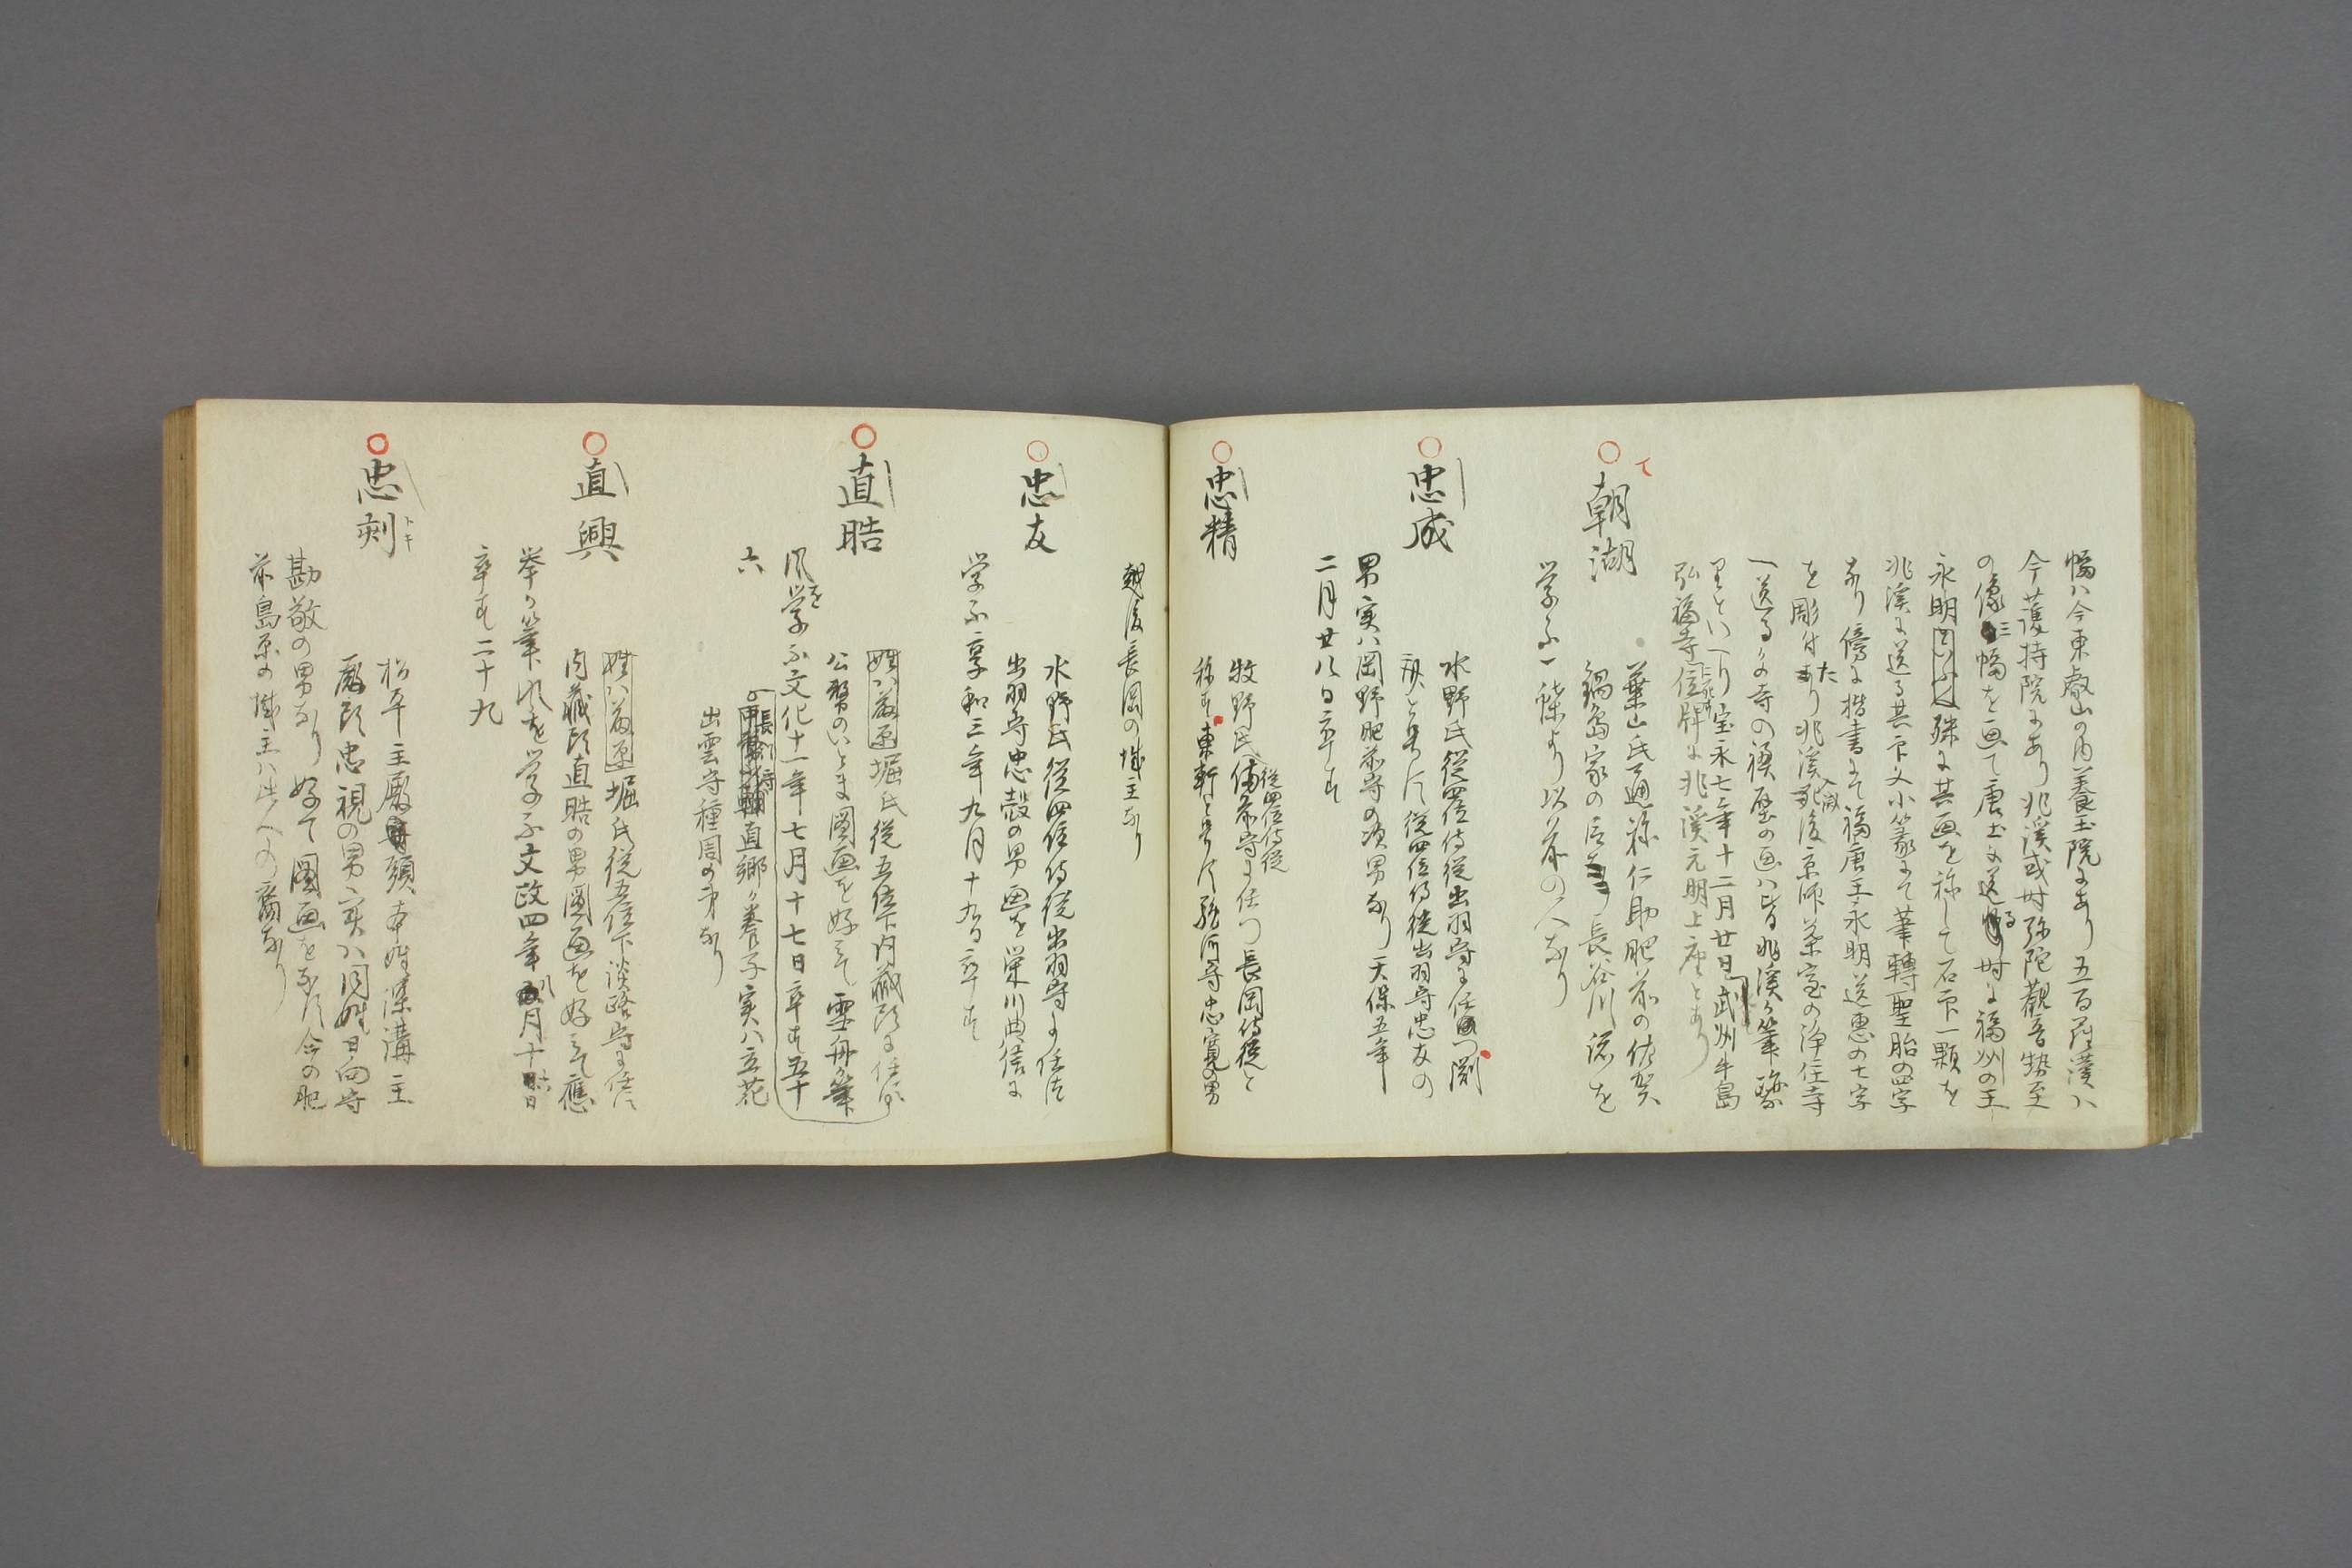 幅ハ今東叡山の内養玉院にあり五百羅漢ハ
今護持院にあり兆溪或時弥陀観音勢至
の像三幅を画て唐土に送る時に福州の王
永明といふ人殊に其画を称して石印一顆を
兆溪に送る其印文小篆にて筆轉聖胎の四字
あり傍に楷書にて福唐王永明送惠の七字
を彫付たり兆溪後京師葉室の浄住寺
へ送るかの寺の襖壁の画ハ皆兆溪か筆跡
なりといへり宝永七年十二月廿日武州牛島
弘福寺に死す位牌に兆溪元明上座とあり
て
朝湖
葉山氏通称仁助肥前の佐賀
鍋島家の臣長谷川をを
学ふ一蝶より以前の人なり
忠成
水野氏従四位侍従出羽守に任
と号す従四位侍従出羽守忠友の
男実ハ岡野肥前守の次男なり天保五年
二月廿八日卒す
忠精
牧野氏従四位侍従備前守に任つ長岡侍従と
称す東軒と号す駿河守忠寛の男
越後長岡の城主なり
忠友
水野氏従四位侍従出羽守に任す
出羽守忠穀の男画を栄川典信に
学ふ享和三年九月十九日卒す
直晧
姓ハ藤原堀氏従五位下内藏頭に任す
公務のいとま図画を好みて雪舟か筆
風を学ふ文化十一年七月十七日卒す五十
六
直郷か養子実ハ立花
出雲守種周の弟なり
直興
姓ハ藤原堀氏従五位下淡路守に任す
内藏頭直晧の男図画を好みて應
挙か筆風を学ふ文政四年八月十六日
卒す二十九
忠刻
トキ
松平主殿頭本姓深溝主
殿頭忠視の男実ハ同姓日向守
勘敬の男なり好て図画をなす今の肥
前島原の城主ハ此人の裔なり